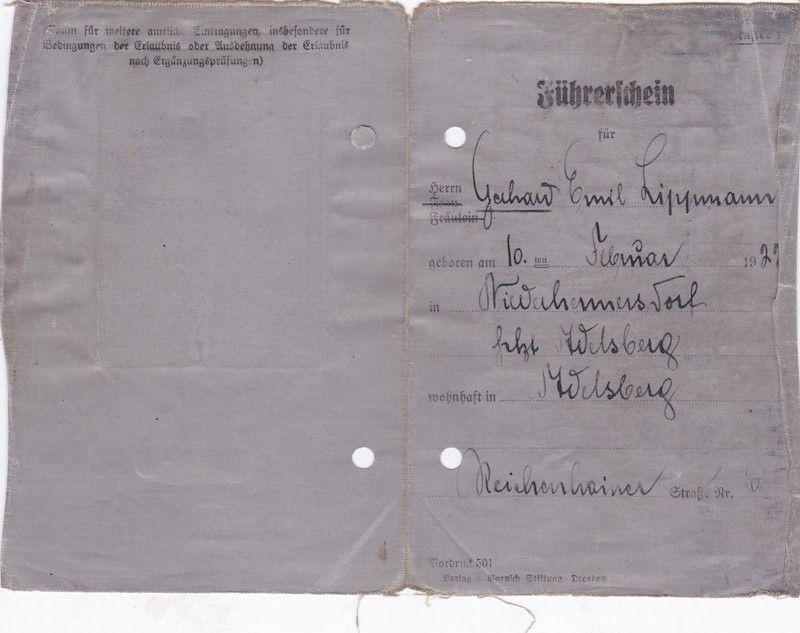 (Raum für weitere amtliche Eintragungen, insbesondere für
Bedingungen der Erlaubnis oder Ausdehnung der Erlaubnis
nach Ergänzungsprüfungen)
Führerschein
für
Herrn Gerhard Emil Lippmann
Frau
Fräulein
geboren am 10. ten Februar 1922
in Niederhermersdorf
jetzt Adelsberg
wohnhaft in Adelsberg
Reichenhainer Straße Nr. 6
Vordruck 501
Stiftung, Dresden